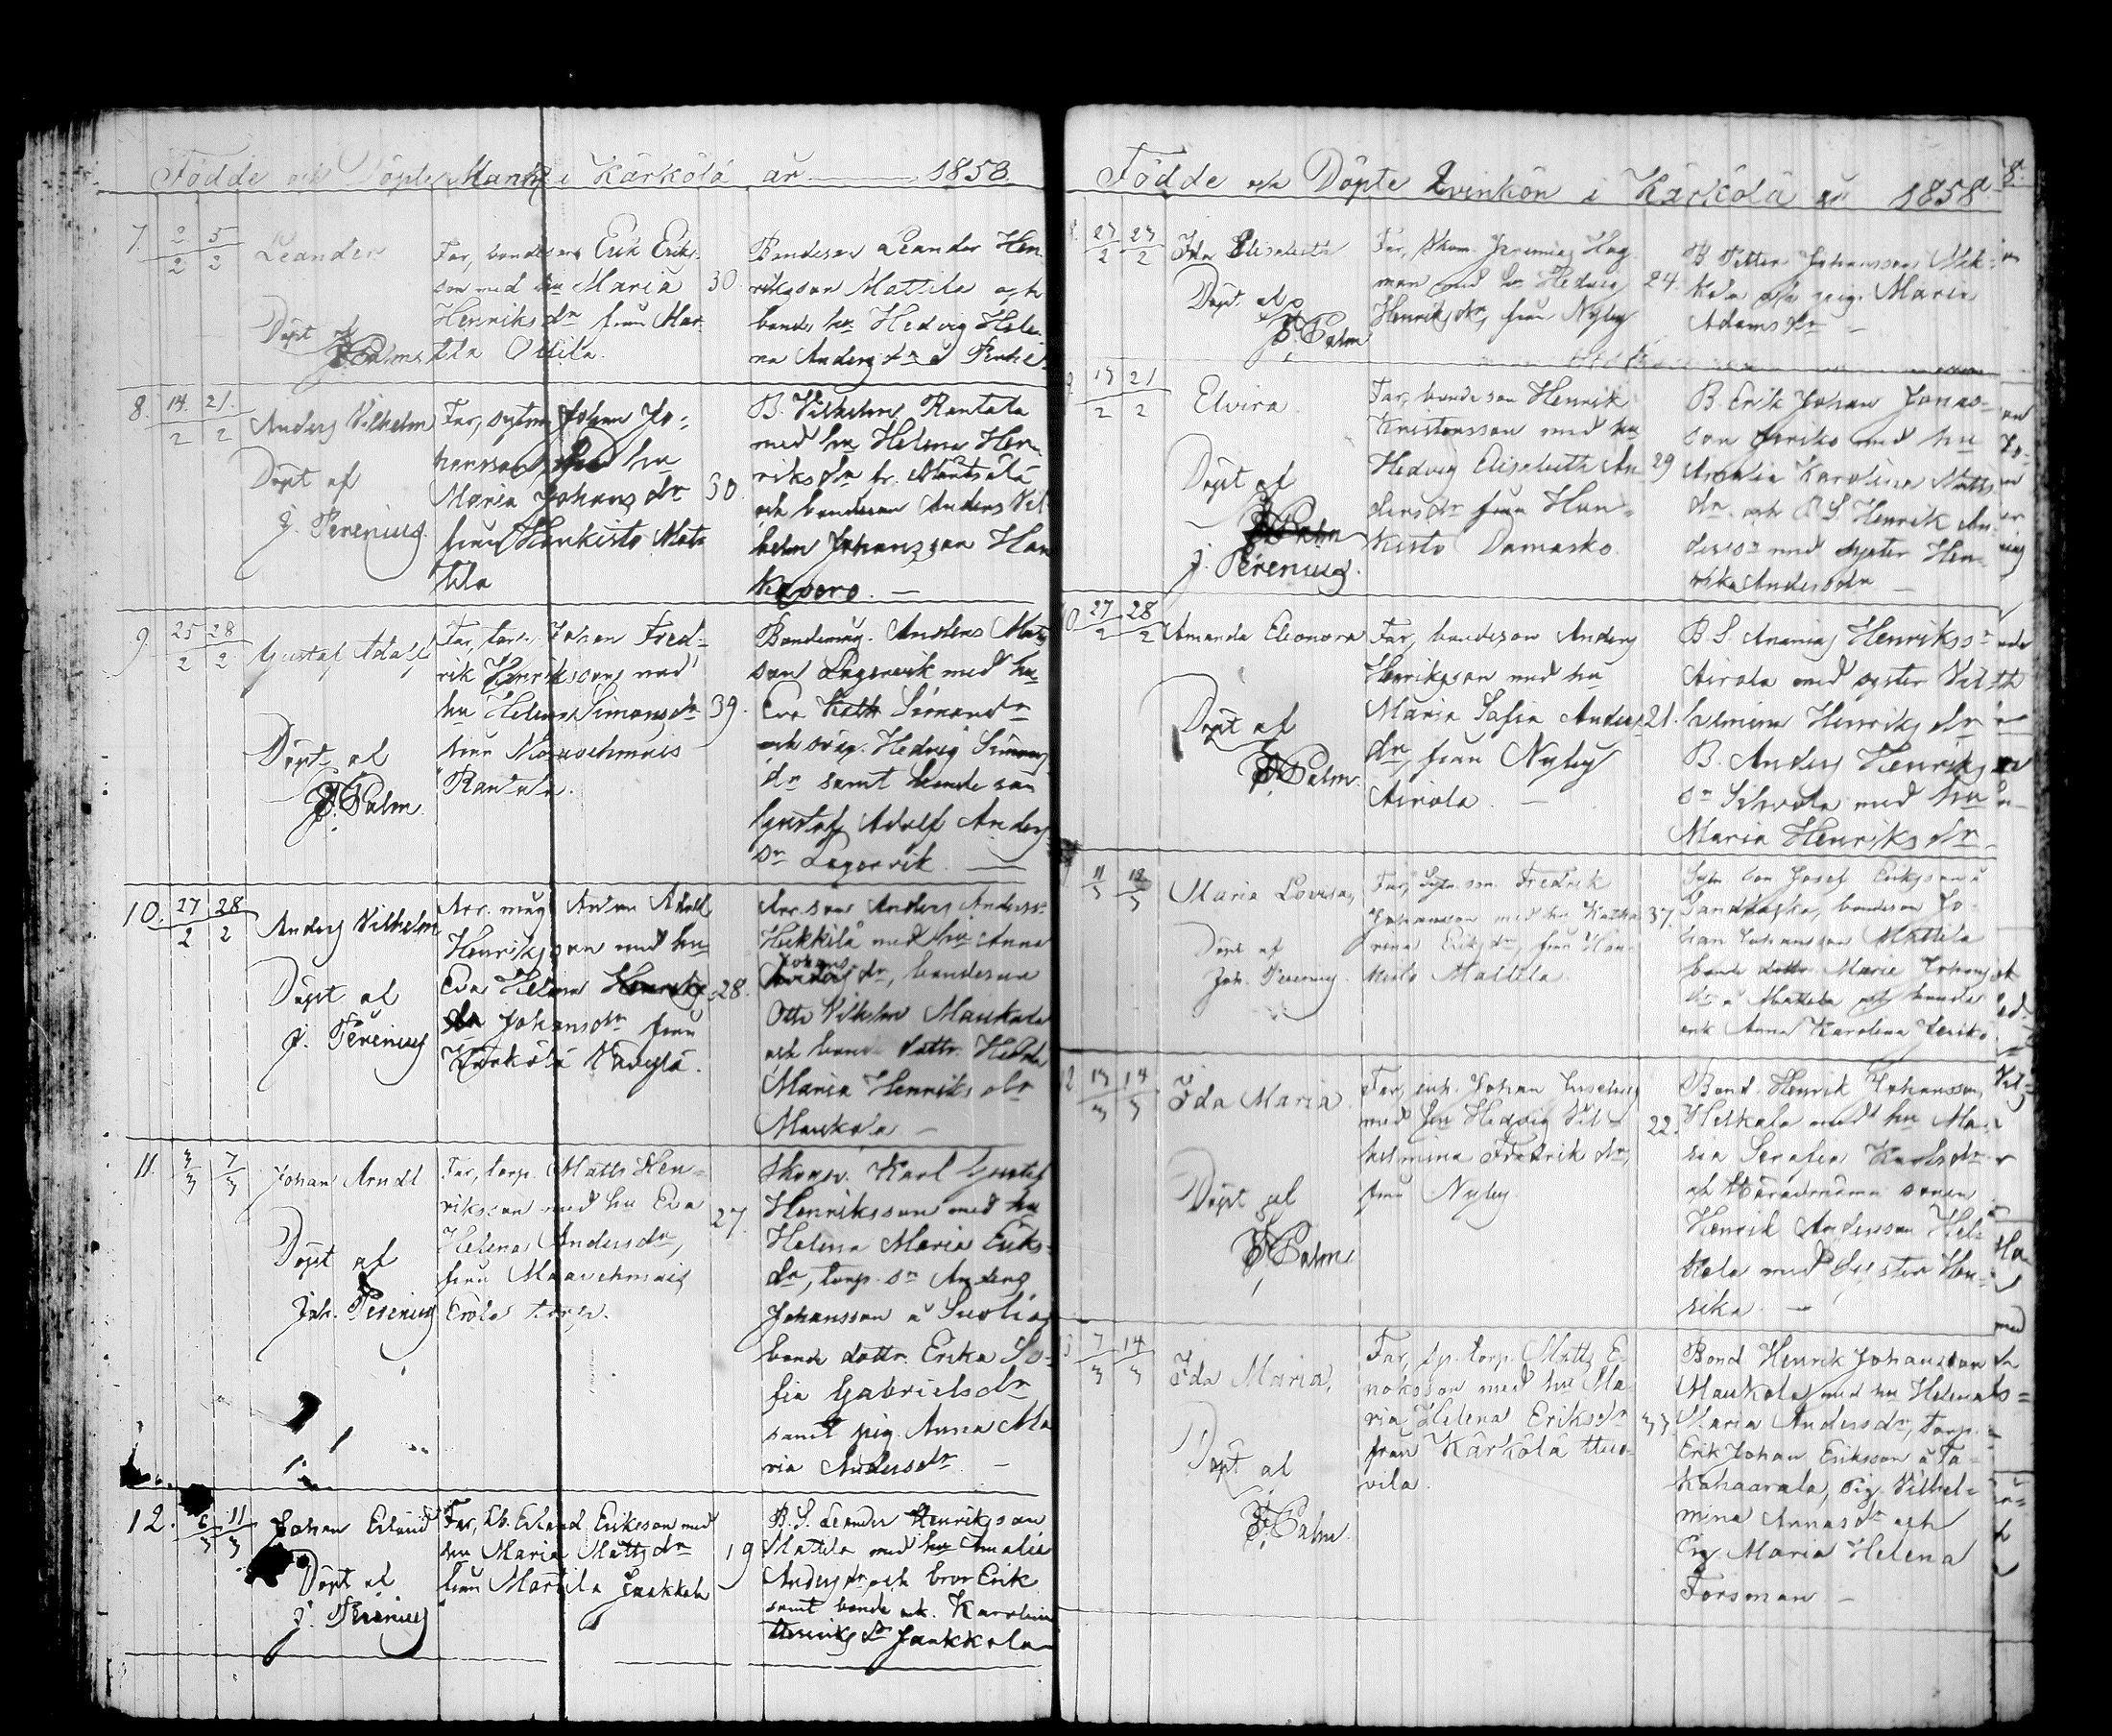 Födde och Döpte Mank i Kärkölä år 1858.
7. 2/2 5/2
Leander
Döpt af
J. Palm
Far, bondeson Erik Eriks-
son med hu Maria
Henriksdr från Mar-
tila Ottila.
30
Bondeson Leander Hen-
riksson Mattila och
bonde hu Hedvig Hele-
na Andersdr
8. 14/2 21/2
Anders Vilhelm
Döpt af
J. Perenius.
Far, sytn. Johan Jo-
hansson med hu
Maria Johansdr
från Hankisto Mat-
tila
30.
B. Vilhelm Rantala
med hu Helena Hen-
riksdr fr. Mäntsälä
och bondeson Anders Vil-
helm Johansson Han-
9. 25/2 28/2
Gustaf Adolf
Döpt af
J. Palm.
Far, torp. Johan Fred-
rik Henriksson med
hu Helena Simonsdr
från Maavehmais
Rantala.
39.
Bondemåg. Anders Mats-
son Lagervik med hu
Eva Simonsdr
och Hedvig Simons
dr samt bondeson
Gustaf Adolf Anders
sn Lagervik.
10. 27/2 28/2
Anders Vilhelm
Döpt af
J. Perenius
Arr. måg Anton Adolf
Henriksson med hu
Eva Helena Henriks
dr Johansdr från
Kärkölä
28.
Arr. son Anders Anderss.
Heikkilä med hu Anna
Johans
Andersdr, bondeson
Otto Vilhelm Maukola
och bonde dottr. Hedda
Maria Henriksdr
Maukola
11. 3/3 7/3
Johan Arndt
Döpt af
Joh. Perenius
Far, torp. Matts Hen-
riksson med hu Eva
Helena Andersdr,
från Maavehmais
Erola torp.
27.
Skogsv. Karl Gustaf
Henriksson med hu
Helena Maria Eriks-
dr, torp. sn Anders
Johansson å
bonde dottr. Erika So-
fia Gabrielsdr
samt pig. Anna Ma
ria Andersdr
12. 6/3 11/3
Johan Erland
Döpt af
J. Perenius
Far, Erland Eriksson med
hu Maria Mattsdr
från Martila Jaakkola
19
B. S. Leander Henriksson
Mattila med hu Amalia
Andersdr och bror Erik
samt bonde enk. Karolina
Henriksdr Jaakkola
Födde och Döpte Qvinkön i Kärkölä år 1858.
8.
27/2 27/2
Ida Elisabeth
Döpt af
J. Palm
Far, Skom. Jeremias Hag-
man med hu Hedvig
Henriksdr, från Nyby
24.
B. Petter Johansson
och pig. Maria
Adamsdr
21/2
Elvira
Döpt af
Palm
J. Perenius.
Far, bondeson Henrik
Kristersson med hu
Hedvig Elisabeth An-
dersdr från Han-
kisto Damasko.
29
B. Erik Johan Jonas-
son Jeriko med hu
Amalia Karolina Matts
dr och B. S. Henrik An-
dersson med syster Hen-
rika Andersdr
27/2 28/2
Amanda Eleonora
Döpt af
J. Palm.
Far, bondeson Anders
Henriksson med hu
Maria Sofia Anders
dr, från Nyby
Airola.
21.
B S. Ananias Henrikssn
Airola med syster Vil-
helmina Henriksdr
B. Anders Henriks
sn med hu
Maria Henriksdr
11/3
Maria Lovisa,
Döpt af
Joh. Perenius.
Far, Sytn. son Fredrik
Johansson med hu Katha
rina Eriksdr från Han-
kisto Mattila.
37.
Sytn. son Josef Eriksson å
bondeson Jo-
han Johansson Mattila
bonde dottr. Maria Johans
dr å Mattila och bonde
enk Anna Karolina Jeriko
14/3
Ida Maria.
Döpt af
J. Palm
Far, inh. Johan
med hu Hedvig Vil-
helmina Fredriksdr,
från Nyby.
22.
Bond. Henrik Johansson
med hu Ma-
ria Serafia Karlsdr
och
Henrik Andersson
med Syster Hen-
rika.
7/3 14/3
Ida Maria,
Döpt af
J. Palm.
Far, torp. Matts E-
noksson med hu Ma-
ria Helena Eriksdr
från Kärkölä Huo-
vila.
33
Bond Henrik Johansson
Maukola med hu Helena
Maria Andersdr, torp.
Erik Johan Eriksson å
pig. Vilhel-
mina och
Pig. Maria Helena
Forsman